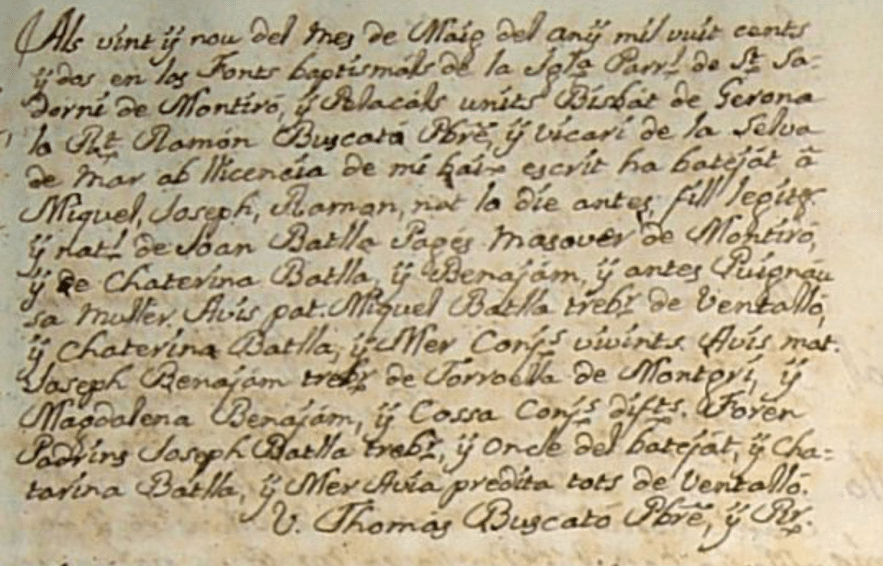 Als vint ÿ nou del Mes de Maig del anÿ mil vuit cents
ÿ dos en las Fonts baptismáls de la Igla Parrl de St Sa-
dorni de Montiró, ÿ Pelacáls units Bisbát de Gerona
lo Rt Ramón Buscató Pbrē, ÿ vicari de la Selva
de Mar ab llicencia de mi baix escrit ha bateját ā
Miquel, Joseph, Ramon, nat lo die antes, fill legitm
ÿ natl de Joan Batlla Pagés Masovér de Montiró,
ÿ de Chaterina Batlla, ÿ Benajám, ÿ antes Puignáu
sa Muller. Avis pat. Miquel Batlla trebr de Ventalló,
ÿ Chaterina Batlla, ÿ Mer Conjs vivints. Avis mat.
Joseph Benajám trebr de Torroella de Montgrí, ÿ
Magdalena Benajám, ÿ Cossa Conjs difts. Foren
Padrins Joseph Batlla trebr, ÿ Oncle del bateját, ÿ Cha=
tarina Batlla, ÿ Mer Avia predita tots de Ventalló.
V. Thomás Buscató Pbrē, ÿ Rr.